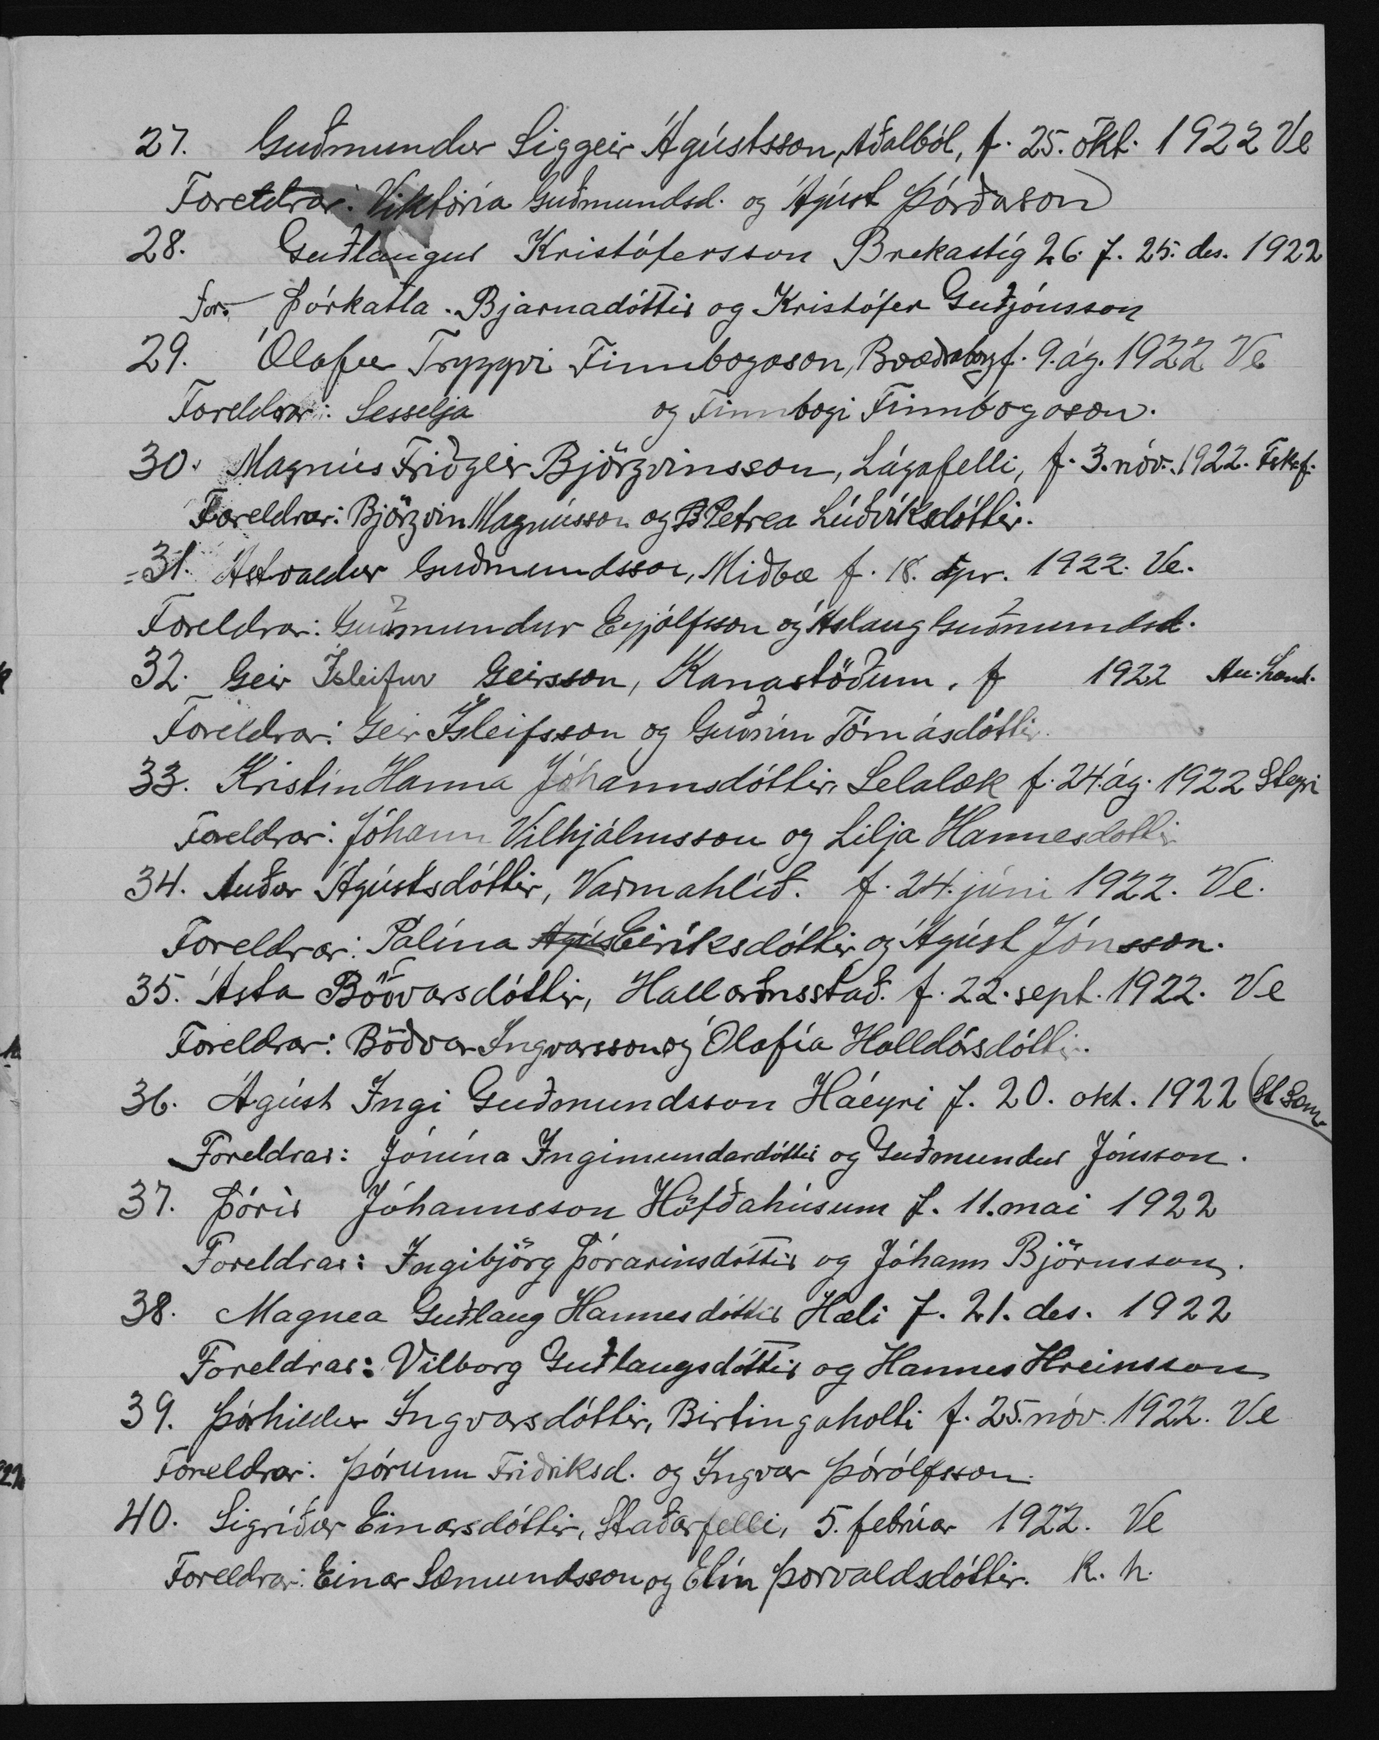 27. Guðmundur Siggeir Ágústsson, Aðalból, f. 25. okt. 1922 Ve
Foreldrar: Viktoría Guðmundsd. og Ágúst Þórðarson
28. Guðlaugur Kristófersson Brekastíg 26. f. 25. des. 1922
for. Þórkatla Bjarnadóttir og Kristófer Guðjónsson
29. Ólafur Tryggvi Finnbogason, Bræðraborg f. 9. ág. 1922 Ve
Foreldrar: Sesselja og Finnbogi Finnbogason.
30. Magnús Friðgeir Björgvinsson, Lágafelli, f. 3. nóv. 1922. Fskf.
Foreldrar: Björgvin Magnússon og Petrea Lúðvíksdóttir.
31. Ástvaldur Guðmundsson, Miðbæ f. 18. apr. 1922. Ve.
Foreldrar: Guðmundur Eyjólfsson og Áslaug Guðmundsd.
32. Geir Ísleifur Geirsson, Kanastöðum. f 1922 Au-Land.
Foreldrar: Geir Ísleifsson og Guðrún Tómásdóttir
33. Kristín Hanna Jóhannsdóttir, Selalæk f. 24. ág. 1922 Steyri
Foreldrar: Jóhann Vilhjálmsson og Lilja Hannesdottir
34. Auður Ágústsdóttir, Varmahlíð. f. 24. júní 1922. Ve.
Foreldrar: Pálína Ágús Eiríksdóttir og Ágúst Jónsson.
35. Ásta Böðvarsdóttir, Hallormsstað. f. 22. sept. 1922. Ve
Foreldrar: Böðvar Ingvarsson og Ólafía Halldórsdóttir.
36. Ágúst Ingi Guðmundsson Háeyri f. 20. okt. 1922 (St Sam.
Foreldrar: Jónína Ingimundardóttir og Guðmundur Jónsson.
37. Þórir Jóhannsson Höfðahúsum f. 11. mai 1922
Foreldrar: Ingibjörg Þórarinsdóttir og Jóhann Björnsson.
38. Magnea Guðlaug Hannesdóttir Hæli f. 21. des. 1922
Foreldrar: Vilborg Guðlaugsdóttir og Hannes Hreinsson
39. Þórhildur Ingvarsdóttir, Birtingaholti f. 25. nóv. 1922. Ve
Foreldrar: Þórunn Friðriksd. og Ingvar Þórólfsson.
40. Sigríður Einarsdóttir, Staðarfelli, 5. febrúar 1922. Ve
Foreldrar: Einar Sæmundsson og Elín Þorvaldsdóttir. K. h.